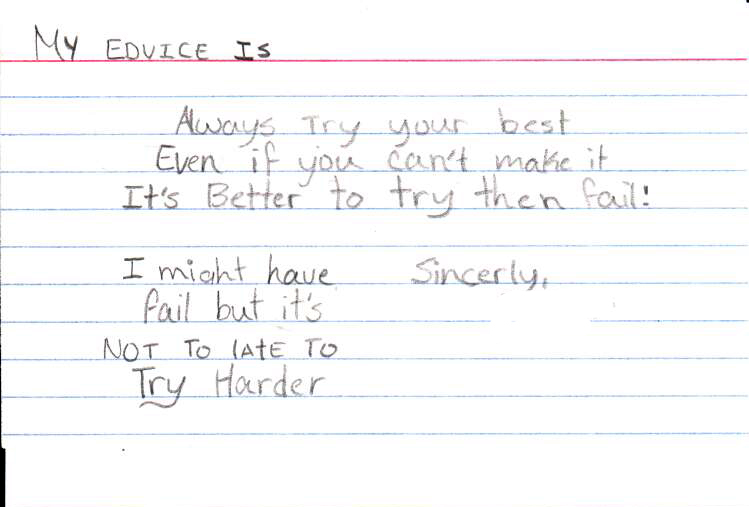 My EDVICE Is
Always Try your best
Even if you can't make it
It's Better to try then fail!
I might have
fail but it's
NOT TO lATE TO
Try Harder
Sincerly,